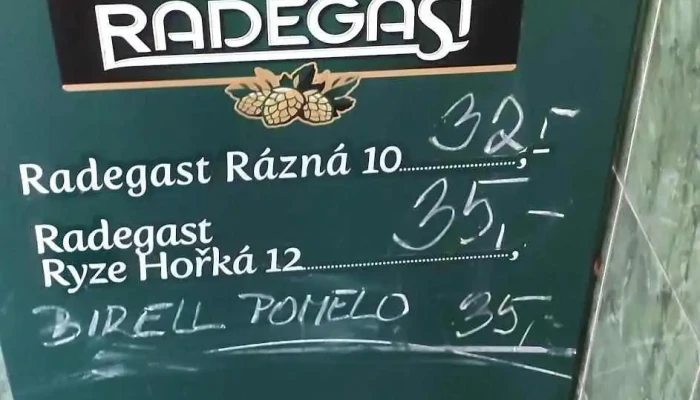 RADEGAST
Radegast Rázná 10........................, 32,-
Radegast
Ryze Hořká 12........................................, 35,-
BIRELL POMELO 35,-